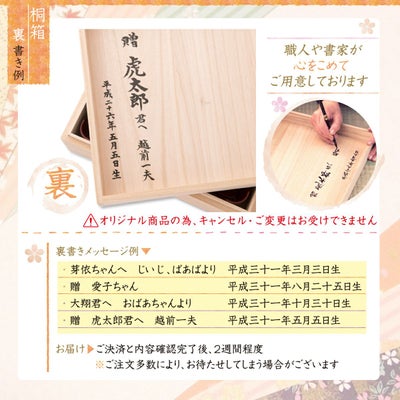 桐箱
裏書き例
贈 虎太郎君へ 越前一夫
平成二十六年五月五日生
職人や書家が
心をこめて
ご用意しております
裏
オリジナル商品の為、キャンセル・ご変更はお受けできません
裏書きメッセージ例▼
・芽依ちゃんへ じいじ、ばあばより 平成三十一年三月三日生
・贈 愛子ちゃん 平成三十一年八月二十五日生
・大翔君へ おばあちゃんより 平成三十一年十月三十日生
・贈 虎太郎君へ 越前一夫 平成三十一年五月五日生
お届け▶ご決済と内容確認完了後、2週間程度
※ご注文多数により、お待たせしてしまう場合がございます